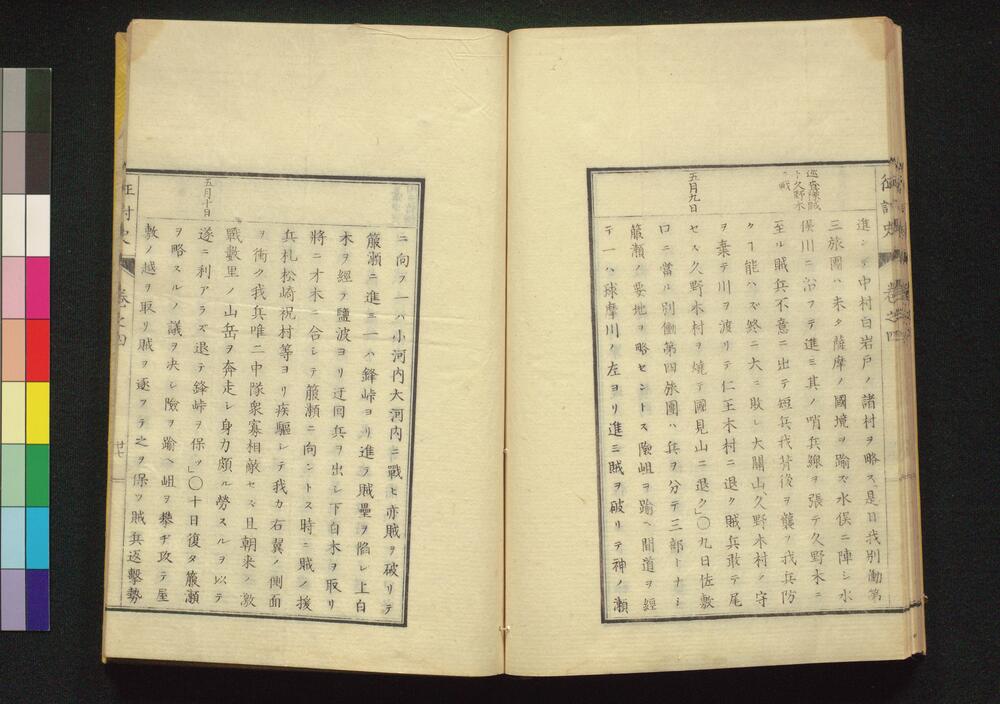 征討史
卷之四
巡査隊賊
ト久野木
ニ戰
進ンデ中村白岩戸ノ諸村ヲ略ス、是日我別働第
三旅團ハ未タ薩摩ノ國境ヲ踰ズ水俣ニ陣シ水
俣川ニ沿フテ進ミ其ノ哨兵線ヲ張テ久野木ニ
至ル賊兵不意ニ出テ短兵我背後ヲ襲フ我兵防
クコ能ハズ終ニ大ニ敗レ大關山、久野木村ノ守
ヲ棄テ川ヲ渡リテ仁王木村ニ退ク賊兵敢テ尾
五月九日
セス久野木村ヲ燒テ國見山ニ退ク」〇九日佐敷
口ニ當ル別働第四旅團ハ兵ヲ分テ三部トナシ
箙瀬ノ要地ヲ略セントス險岨ヲ踰ヘ間道ヲ經
テ一ハ球摩川ノ左ヨリ進ミ賊ヲ破リテ神ノ瀬
ニ向ヲ一ハ小河内大河内ニ戰ヒ亦賊ヲ破リテ
箙瀬ニ進ミ一ハ鋒峠ヨリ進ヲ賊壘ヲ陷レ上白
木ヲ經テ鹽波ヨリ迂回兵ヲ出シ下白木ヲ取リ
將ニ才木ニ合シテ箙瀬ニ向ントス時ニ賊ノ援
兵札松崎祝村等ヨリ疾驅シテ我カ右翼ノ側面
ヲ衝ク我兵唯二中隊衆寡相敵セズ且朝来ノ激
戰數里ノ山岳ヲ奔走シ身力頗ル勞スルヲ以テ
五月十日
遂ニ利アラズ退テ鋒峠ヲ保ツ」〇十日復タ箙瀬
ヲ略スルノ議ヲ决シ險ヲ踰ヘ岨ヲ攀ヂ攻テ屋
敷ノ越ヲ取リ賊ヲ逐フテ之ヲ保ツ賊兵返擊勢
征討史
卷之四
廿七